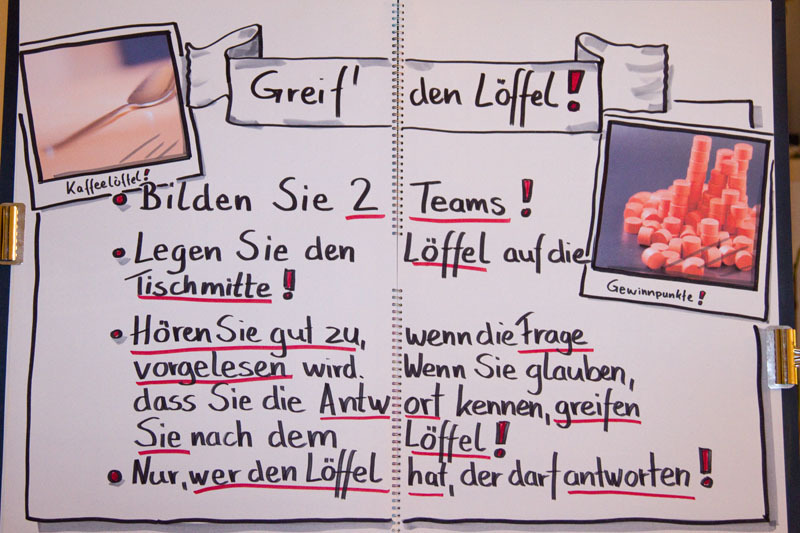 Greif' den Löffel!
Kaffeelöffel!
Gewinnpunkte!
• Bilden Sie 2 Teams!
• Legen Sie den Löffel auf die
Tischmitte!
• Hören Sie gut zu, wenn die Frage
vorgelesen wird. Wenn Sie glauben,
dass Sie die Antwort kennen, greifen
Sie nach dem Löffel!
• Nur, wer den Löffel hat, der darf antworten!